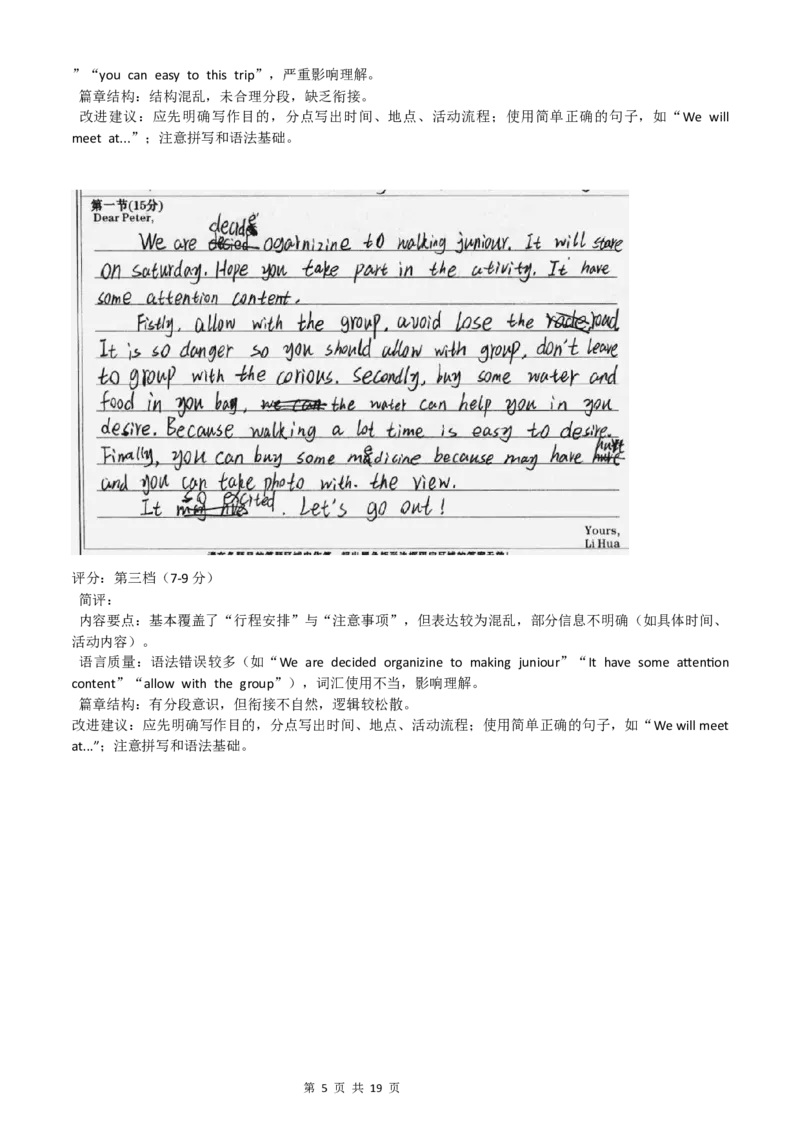 ”“you can easy to this trip”，严重影响理解。
篇章结构：结构混乱，未合理分段，缺乏衔接。
改进建议：应先明确写作目的，分点写出时间、地点、活动流程；使用简单正确的句子，如“We will
meet at...”；注意拼写和语法基础。
第一节(15分)
Dear Peter,
We are decide ogarnizine to walking juniour. It will stare
on saturday. Hope you take part in the ativity. It have
some attention content.
Fistly, allow with the group, avoid lose the road
It is so danger so you should allow with group, don't leave
to group with the corious. Secondly, buy some water and
food in you bag, the water can help you in you
desire. Because walking a lot time is easy to desire.
Finally, you can buy some medicine because may have hurt
and you can take photo with. the view.
It so excited. Let's go out!
Yours,
Li Hua
评分：第三档（7-9分）
简评：
内容要点：基本覆盖了“行程安排”与“注意事项”，但表达较为混乱，部分信息不明确（如具体时间、
活动内容）。
语言质量：语法错误较多（如“We are decided organizine to making juniour”“It have some attention
content”“allow with the group”），词汇使用不当，影响理解。
篇章结构：有分段意识，但衔接不自然，逻辑较松散。
改进建议：应先明确写作目的，分点写出时间、地点、活动流程；使用简单正确的句子，如“We will meet
at...”；注意拼写和语法基础。
第 5 页 共 19 页